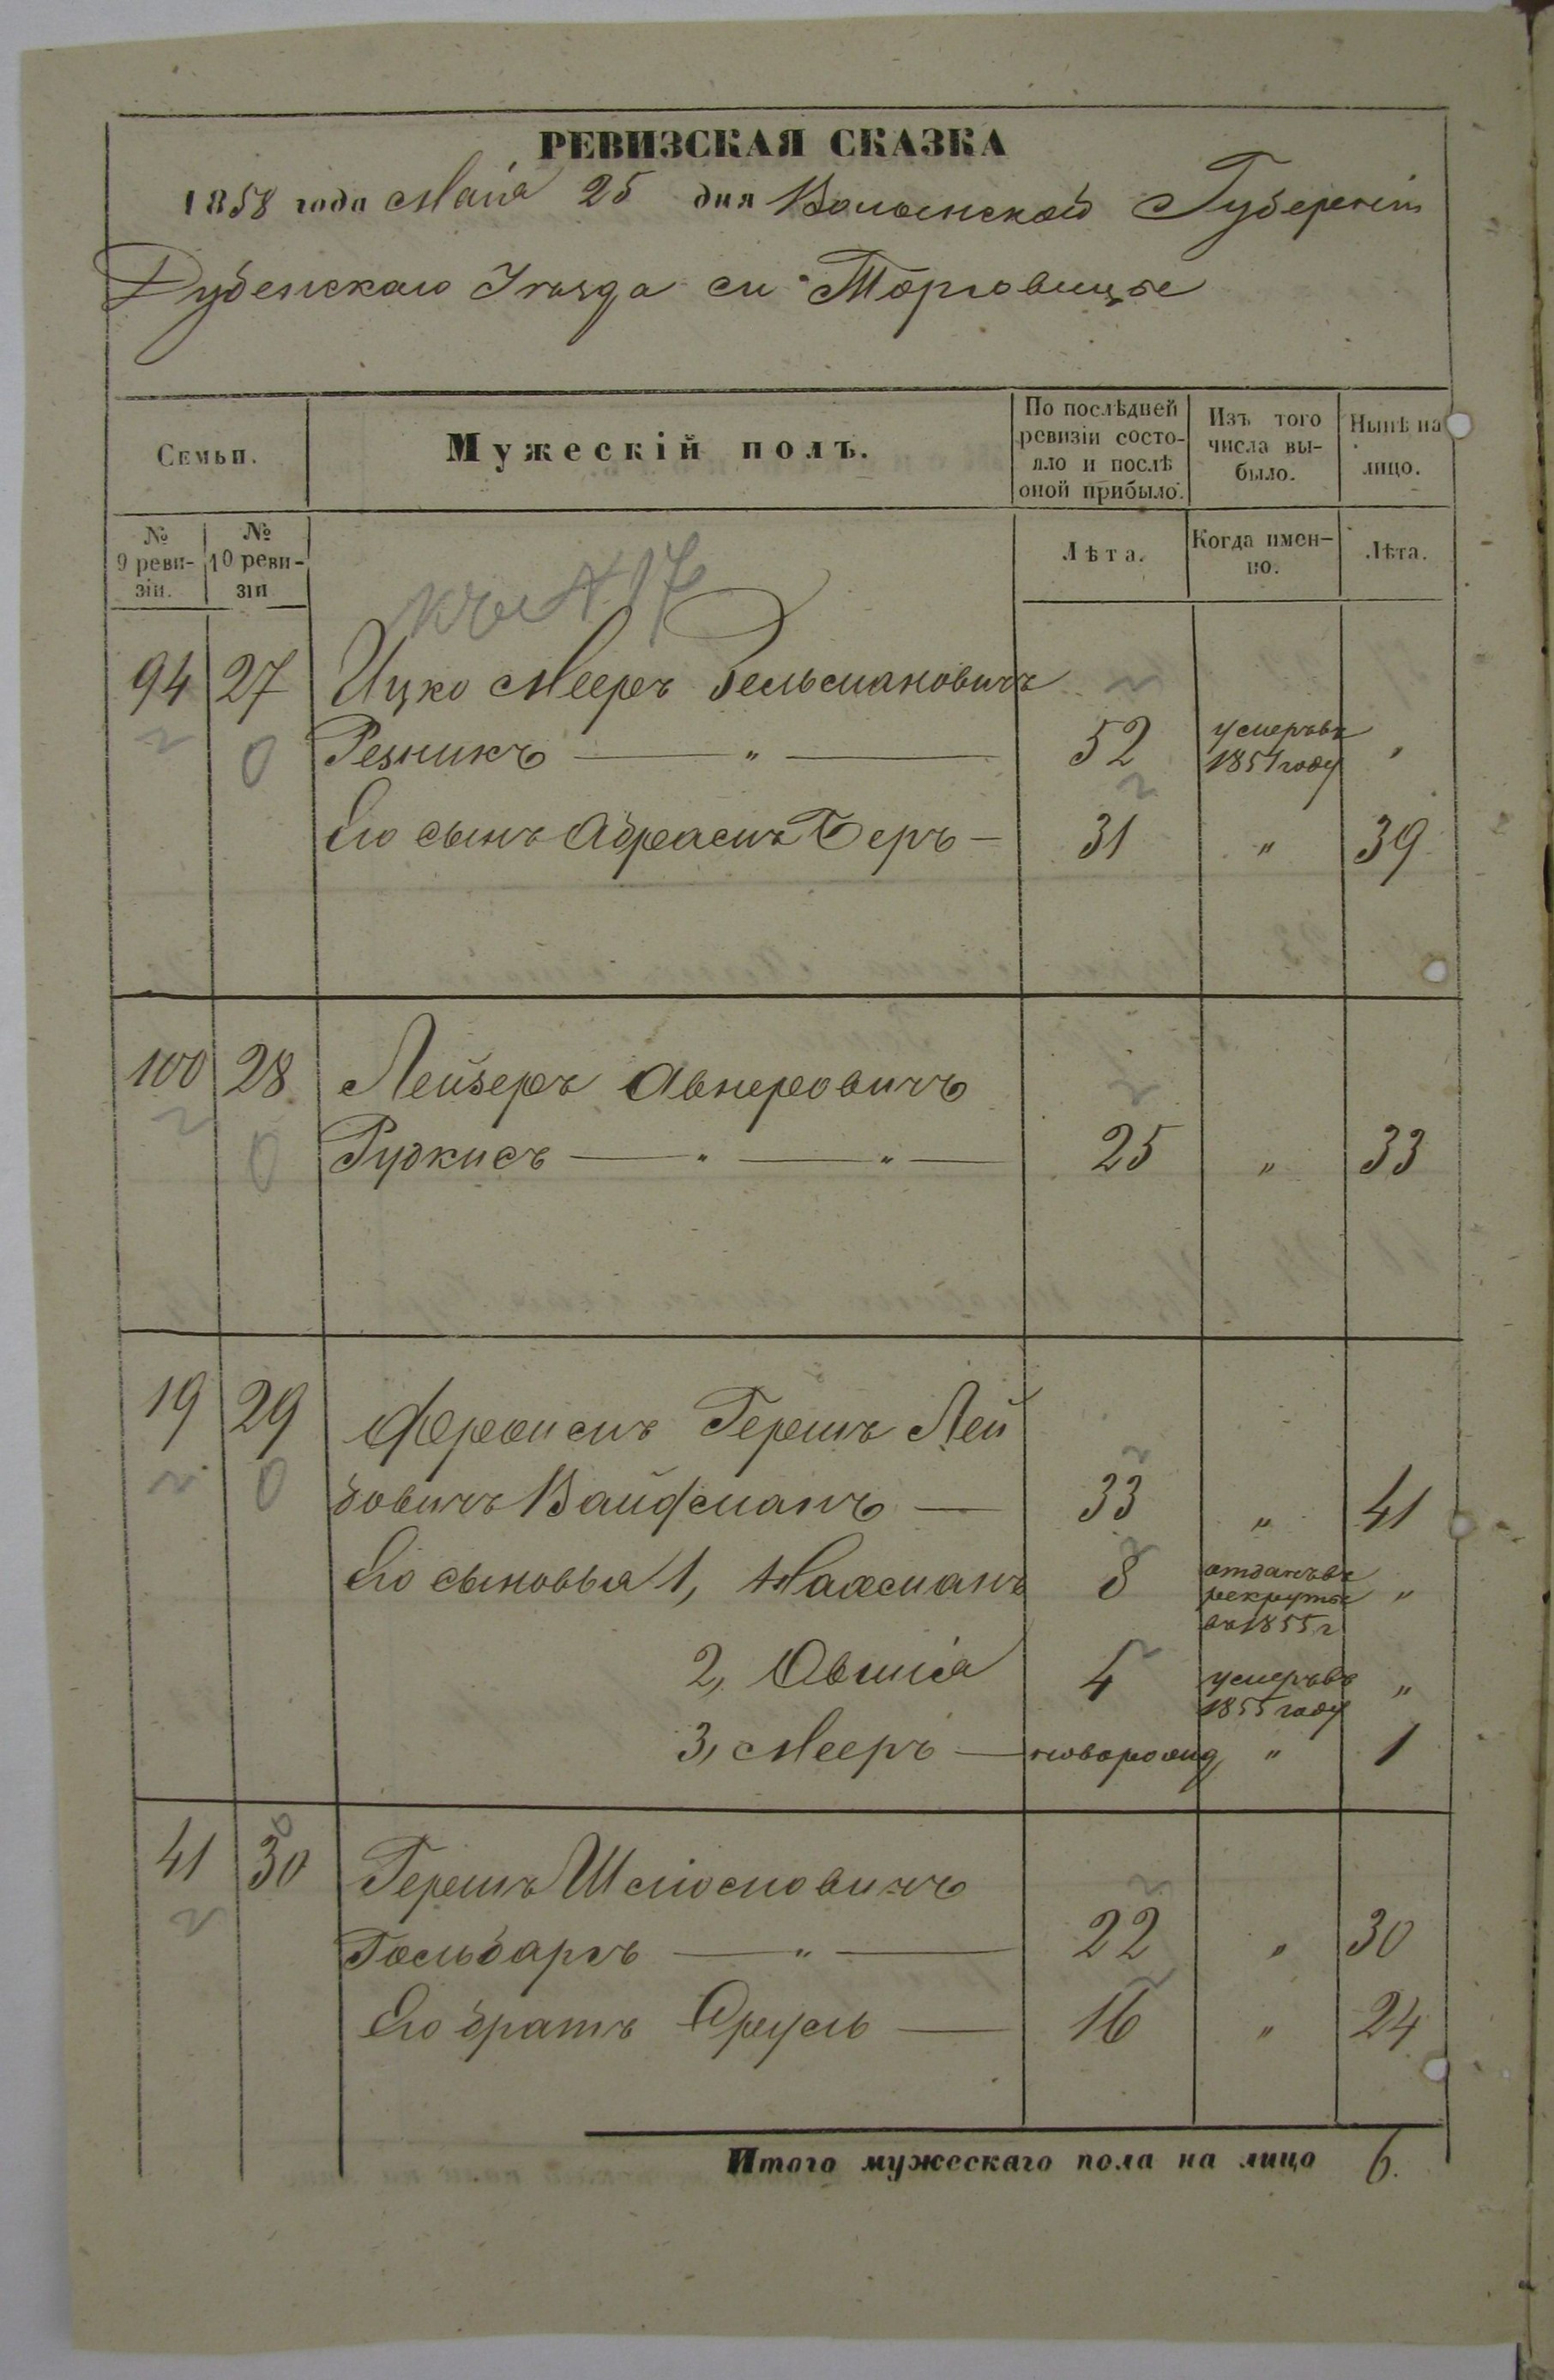 РЕВИЗСКАЯ СКАЗКА
1858 года Маія 25 дня Волынской Губерніи
Дубенскаго Уѣзда м. Торговицѣ
Семьи.
Мужескій полъ.
По послѣдней ревизіи состояло и послѣ оной прибыло.
Изъ того числа выбыло.
Нынѣ на лицо.
№ 9 ревизіи.
№ 10 ревизіи
Лѣта.
Когда именно.
Лѣта.
№ 17
94 27 Ицко Мееръ Гельмановичъ
Резникъ — " — 52 умеръ въ 1851 году "
Его сынъ Абрамъ Беръ — 31 " 39
100 28 Лейзеръ Авнеровичъ
Рудкисъ — " — " — 25 " 33
19 29 Фроимъ Гершъ Лей
бовичъ Вайфманъ — 33 " 41
Его сыновья 1, Нахманъ 8 отданъ въ рекруты въ 1855 г "
2, Овшія 4 умеръ въ 1855 году "
3, Мееръ — новорожд " 1
41 30 Гершъ Шлиомовичъ
Гольбаргъ — " — 22 " 30
Его братъ Сруль — 16 " 24
Итого мужескаго пола на лицо 6.